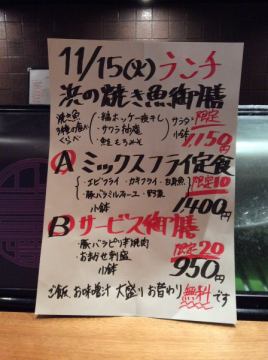 11/15(火) ランチ
浜の焼き魚御膳
焼き魚
3種の食べ
くらべ
・縞ホッケ一夜干し
・サワラ柚庵
サラダ
小鉢
限定
1,150円
A ミックスフライ定食
・エビフライ・カキフライ・白身魚
・豚バラミルフィーユ・野菜
小鉢
限定10
1400円
B サービス御膳
・豚バラピリ辛焼肉
・おまかせ刺盛
小鉢
限定20
950円
ご飯 お味噌汁 大盛り お替わり 無料です